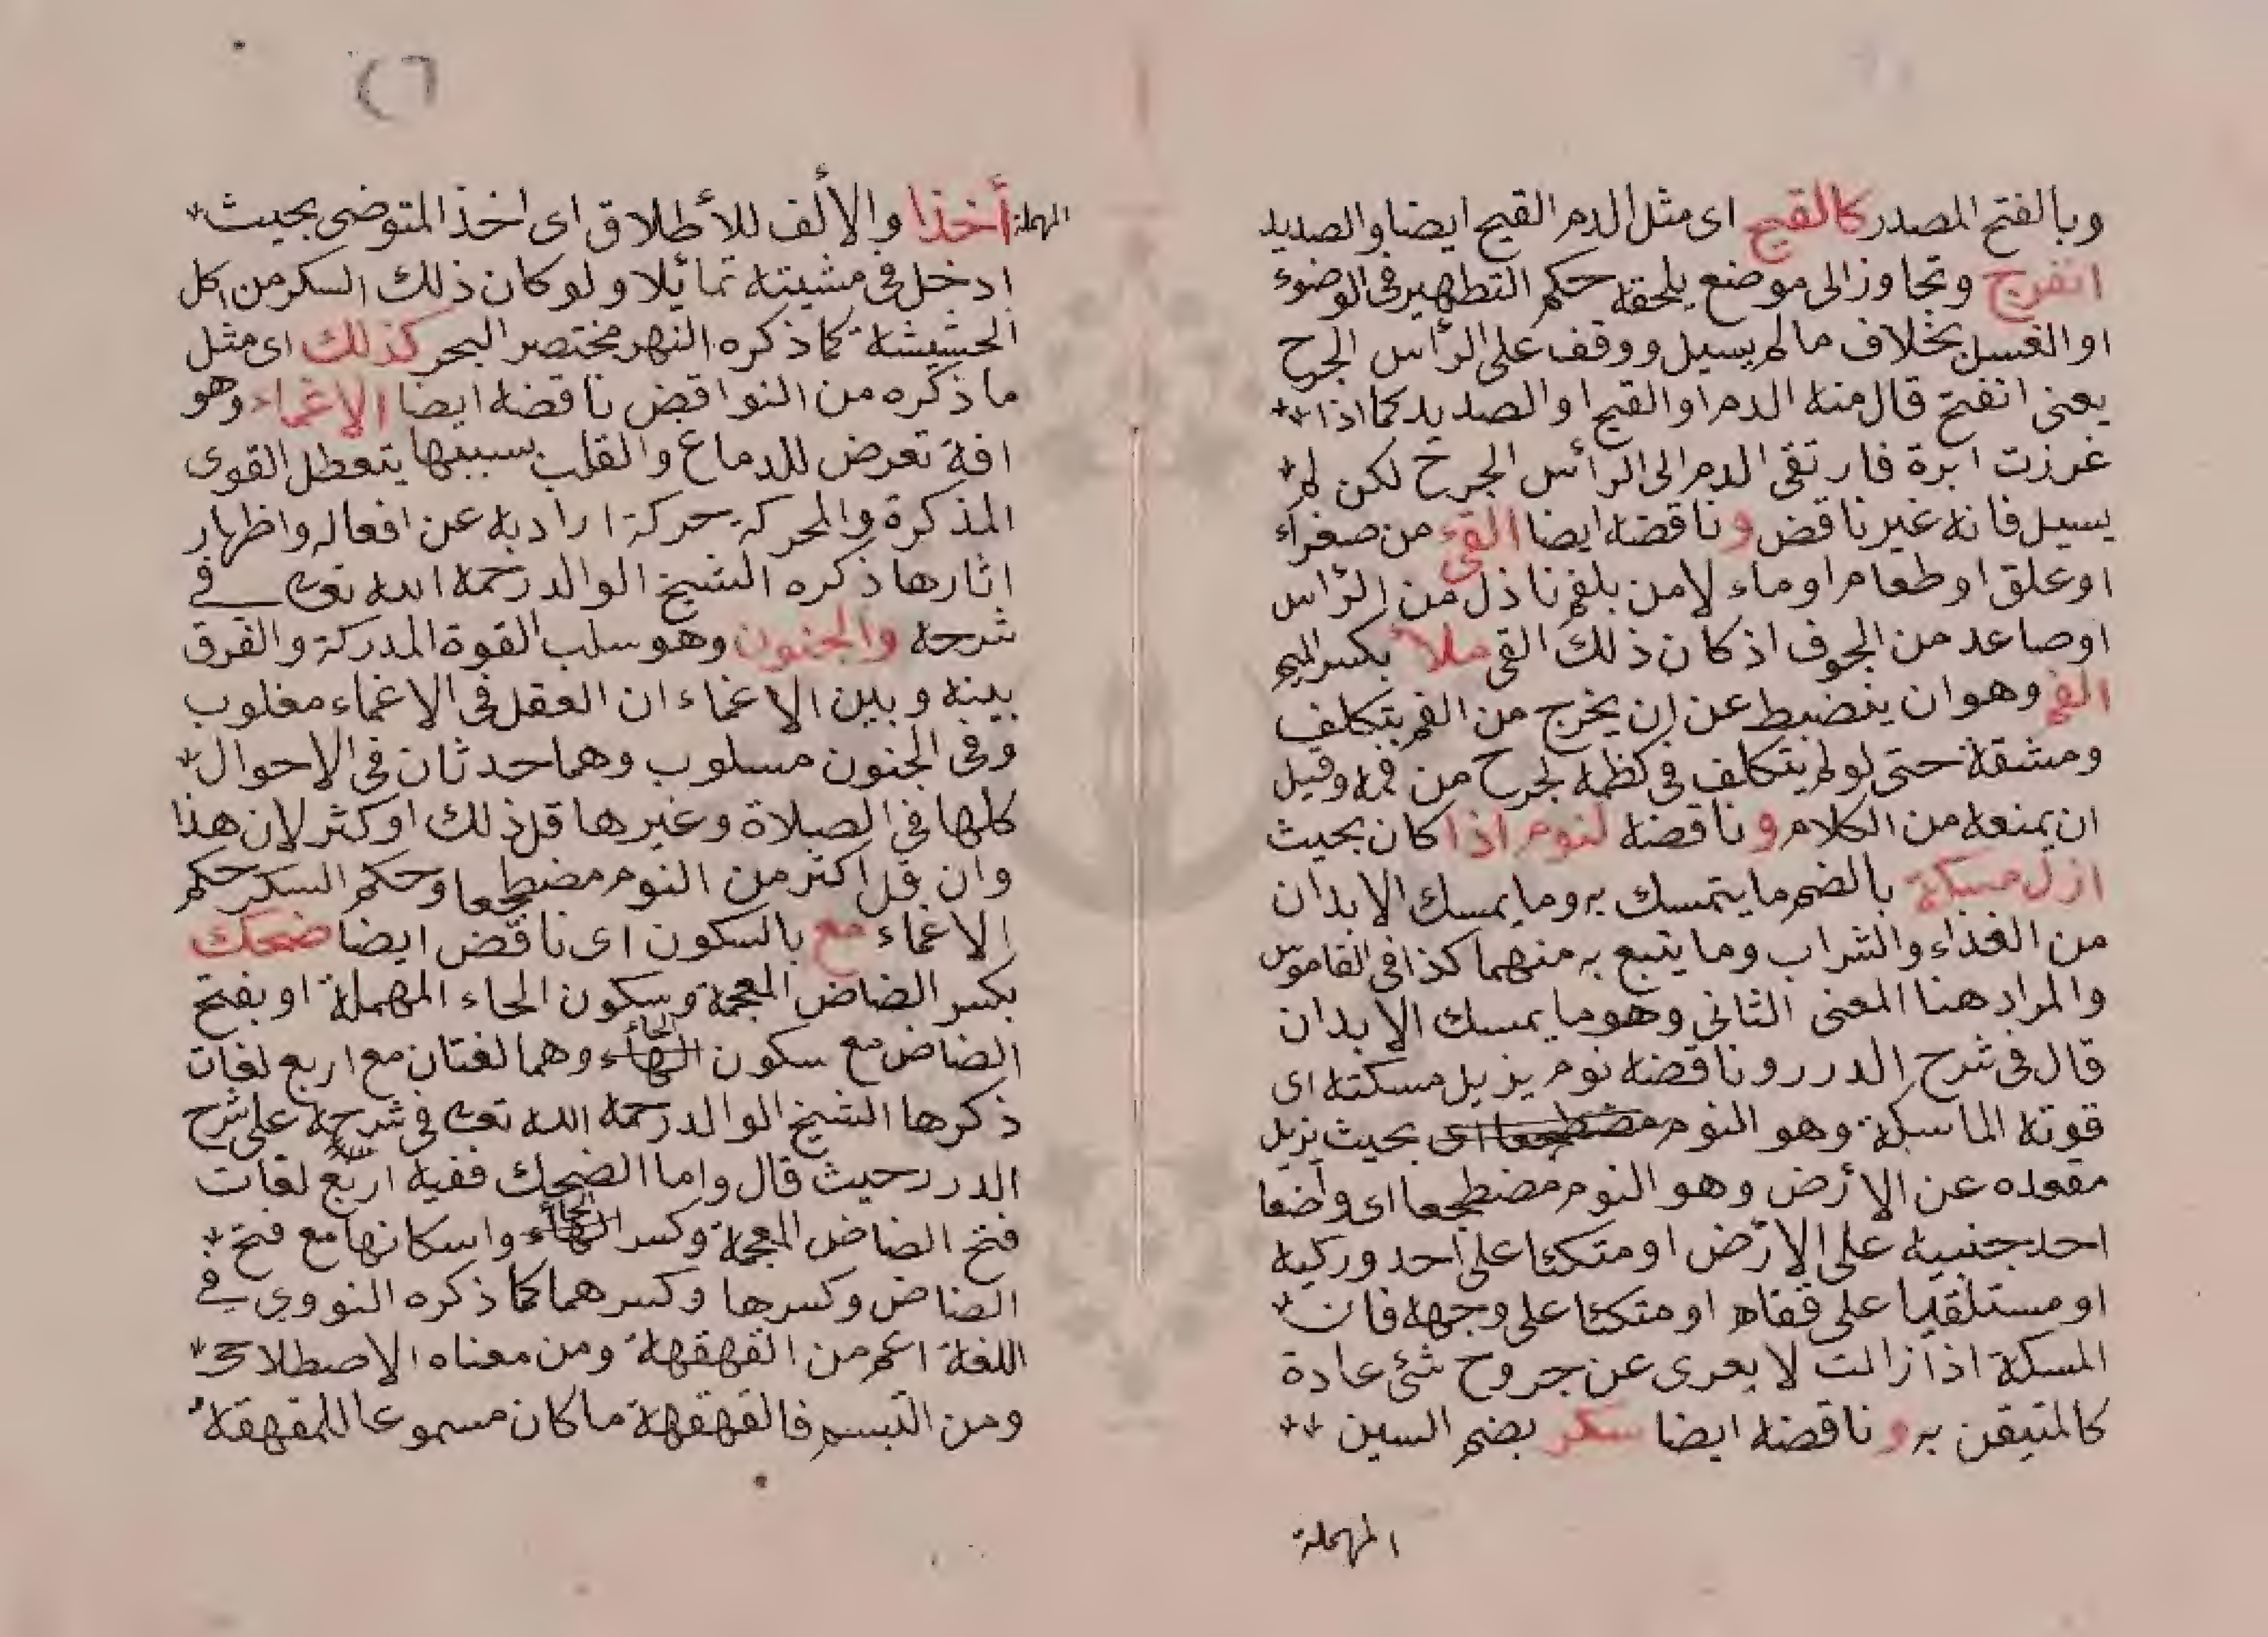 وبالفتح المصدر كالقيح اى مثل الدم القيح ايضا والصديد
انفرج وتجاوز الى موضع يلحقه حكم التطهير فى الوضوء
او الغسل بخلاف ما لم يسيل ووقف على الرأس الجرح
يعنى انفتح قال منه الدم او القيح او الصديد كما اذا
غرزت ابرة فارتقى الدم الى الرأس الجرح لكن لم
يسيل فانه غير ناقض و ناقضه ايضا القئ من صفراء
او علق او طعام او ماء لا من بلغم ناذل من الرأس
او صاعد من الجوف اذ كان ذلك القى ملأ بكسر الميم
الفم وهو ان ينضبط عن ان يخرج من الفم بتكلف
ومشقة حتى لو لم يتكلف فى كظمه لجرح من فمه وقيل
ان يمنعه من الكلام و ناقضه لنوم اذا كان بحيث
ازل مسكة بالضم ما يتمسك به وما يمسك الابدان
من الغذاء والشراب وما يتبع به منهما كذا فى القاموس
والمراد هنا المعنى الثانى وهو ما يمسك الابدان
قال فى شرح الدرر و ناقضه نوم يزيل مسكته اى
قوته الماسكة وهو النوم مضطجعا اى بحيث تزيل
مقعده عن الارض وهو النوم مضطجعا اى واضعا
احد جنبيه على الارض او متكئا على احد وركيه
او مستلقيا على قفاه او متكئا على وجهه فان
المسكة اذا زالت لا يعرى عن جروح شئ عادة
كالمتيقن به و ناقضه ايضا سكر بضم السين
المهملة
المهملة أخذا والألف للأطلاق اى اخذ المتوضى بحيث
ادخل فى مشيته تمائلا ولو كان ذلك السكر من اكل
الحشيشة كما ذكره النهر مختصر البحر كذلك اى مثل
ما ذكره من النواقض ناقضه ايضا الاغماء وهو
افة تعرض للدماغ والقلب بسببها يتعطل القوى
المذكرة والمحركة حركة ارادية عن افعاله واظهار
اثارها ذكره الشيخ الوالد رحمه الله تعالى فى
شرحه والجنون وهو سلب القوة المدركة والفرق
بينه وبين الاغماء ان العقل فى الاغماء مغلوب
وفى الجنون مسلوب وهما حدثان فى الاحوال
كلها فى الصلاة وغيرها قل ذلك او كثر لان هذا
وان قل اكثر من النوم مضطجعا وحكم السكر حكم
الاغماء مع بالسكون اى ناقض ايضا ضحك
بكسر الضاض المعجمة وسكون الحاء المهملة او بفتح
الضاض مع سكون الهاء الحاء وهما لغتان مع اربع لغات
ذكرها الشيخ الوالد رحمه الله تعالى فى شرحه على شرح
الدرر حيث قال واما الضحك ففيه اربع لغات
فتح الضاض المعجمة وكسر الهاء الحاء واسكانها مع فتح
الضاض وكسرها وكسرهما كما ذكره النووى فى
اللغة اعم من القهقهة ومن معناه الاصطلاحى
ومن التبسم فالقهقهة ما كان مسموعا للمقهقه